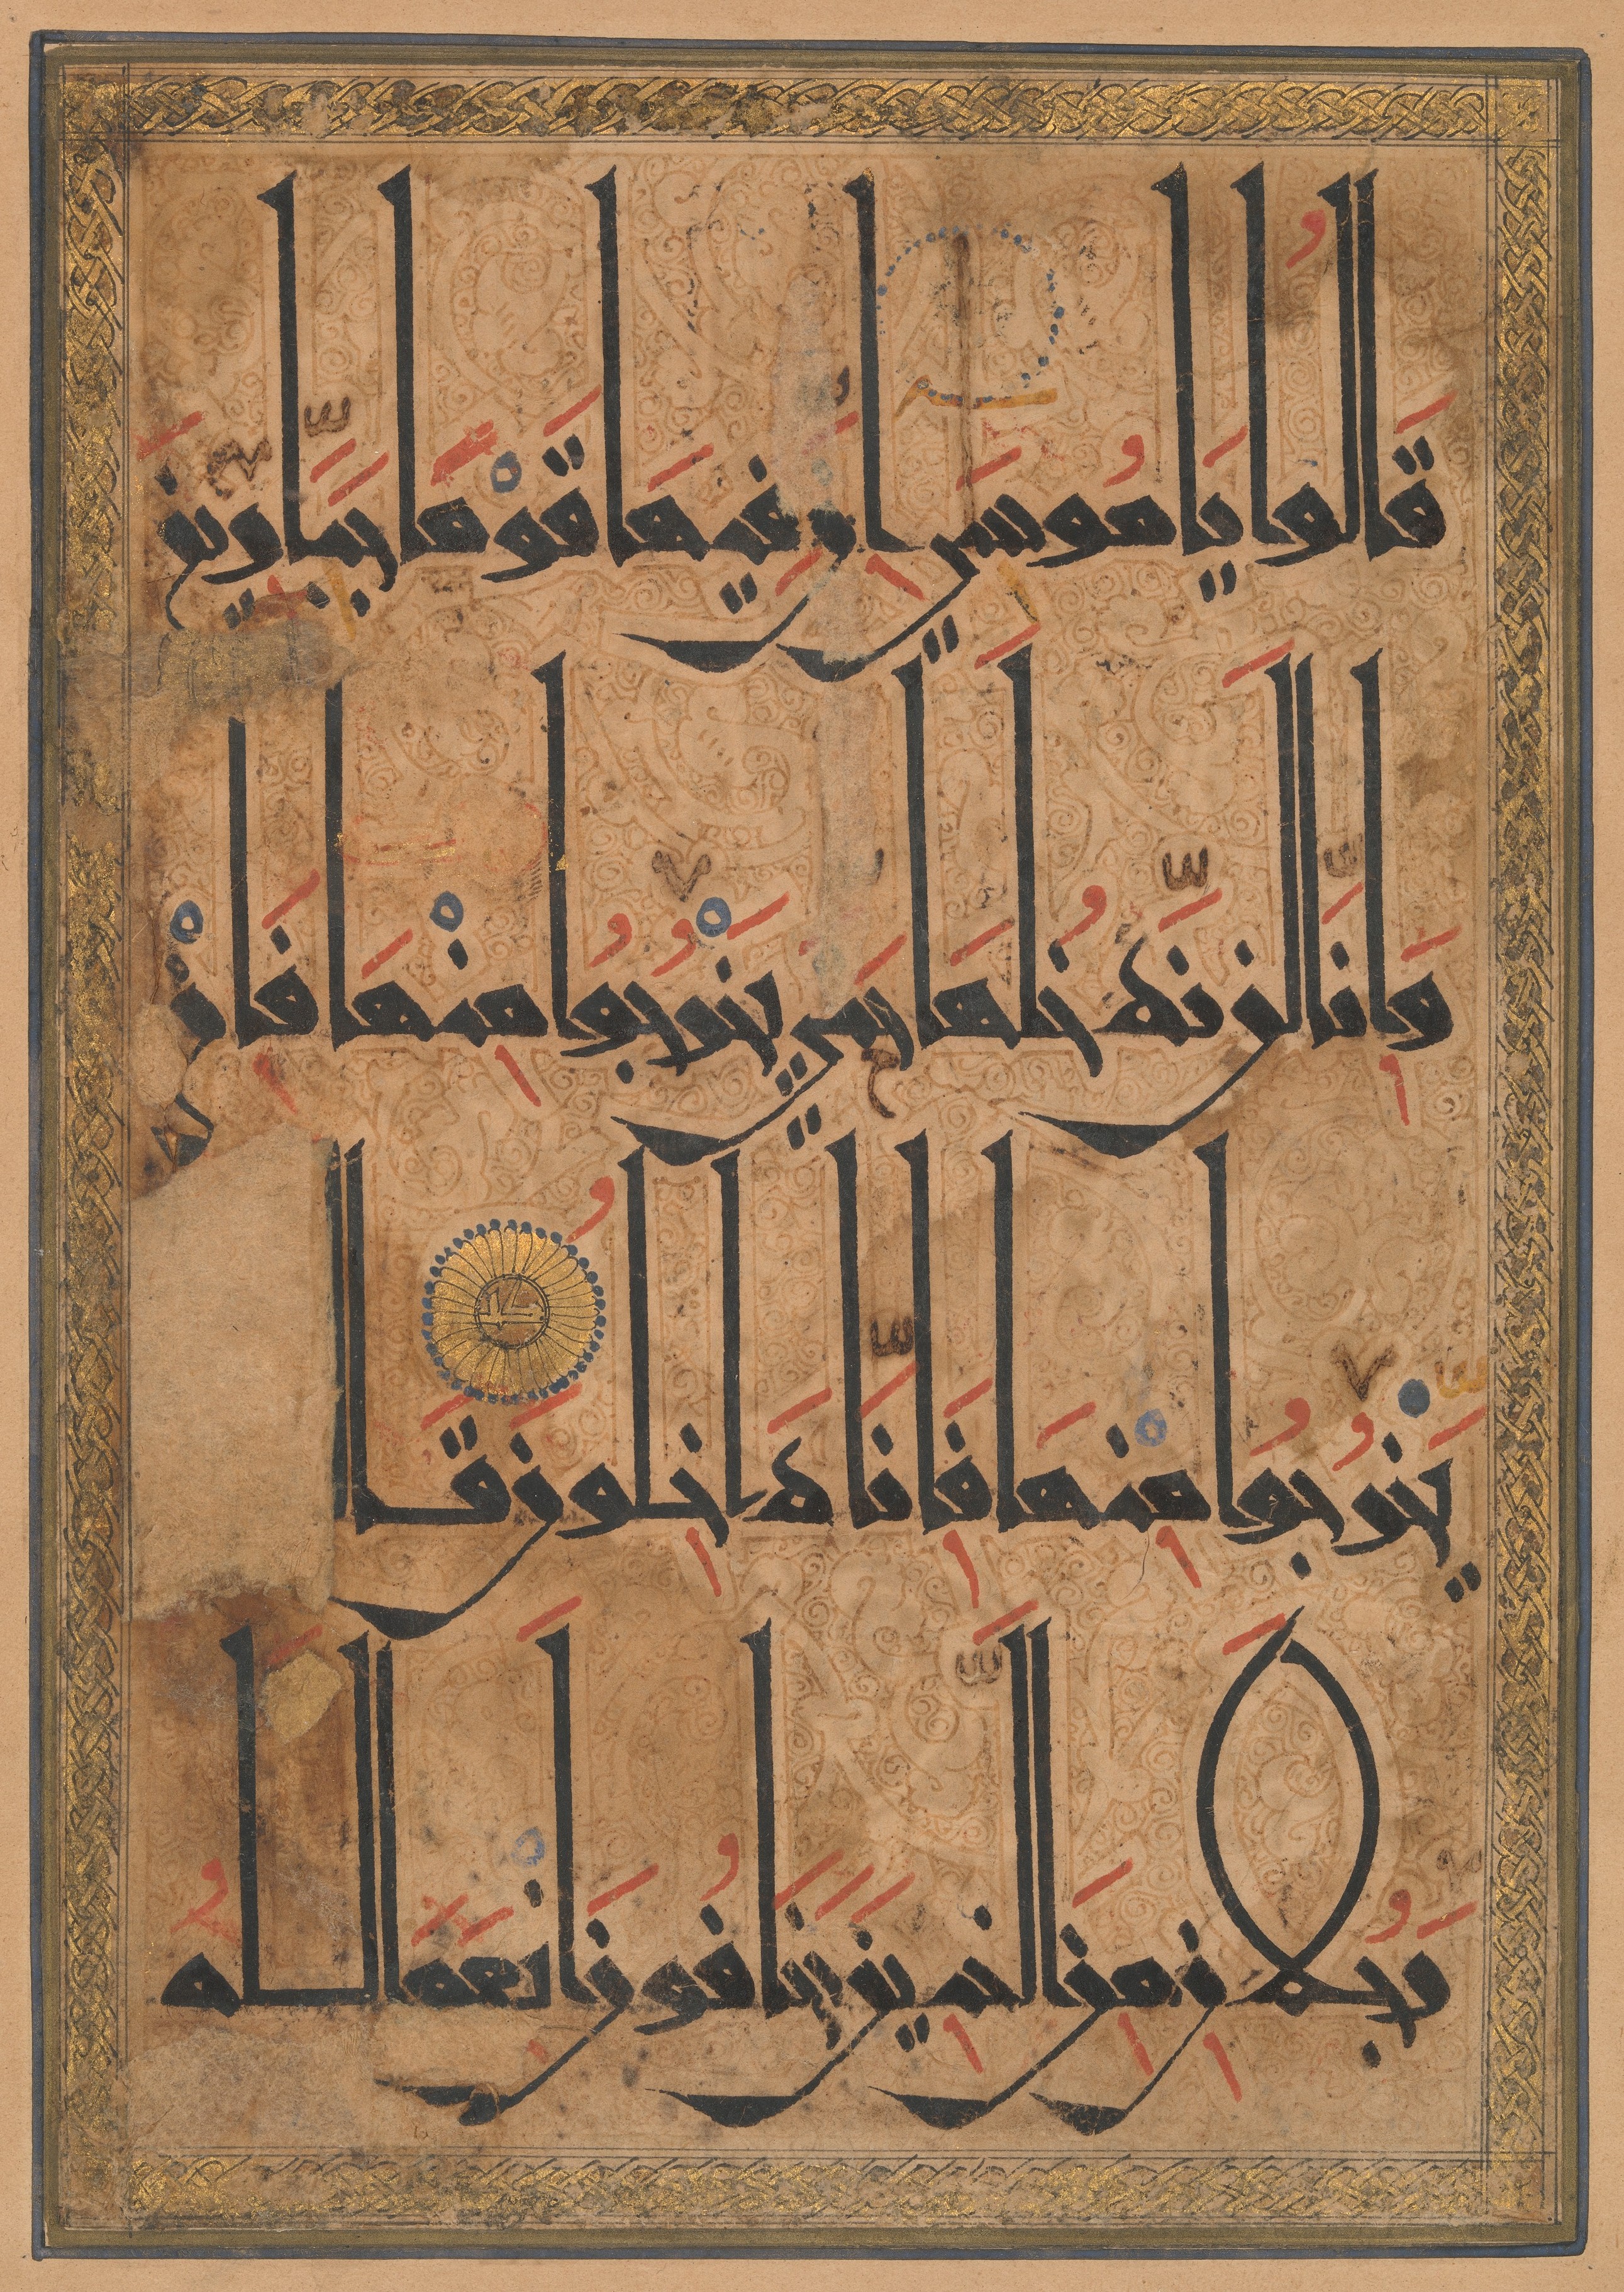 قَالُوا يَا مُوسَى إِنَّ فِيهَا قَوْمًا جَبَّارِينَ
وَإِنَّا لَنْ نَدْخُلَهَا حَتَّى يَخْرُجُوا مِنْهَا فَإِنْ
يَخْرُجُوا مِنْهَا فَإِنَّا دَاخِلُونَ قَالَ
رَجُلَانِ مِنَ الَّذِينَ يَخَافُونَ أَنْعَمَ اللَّهُ